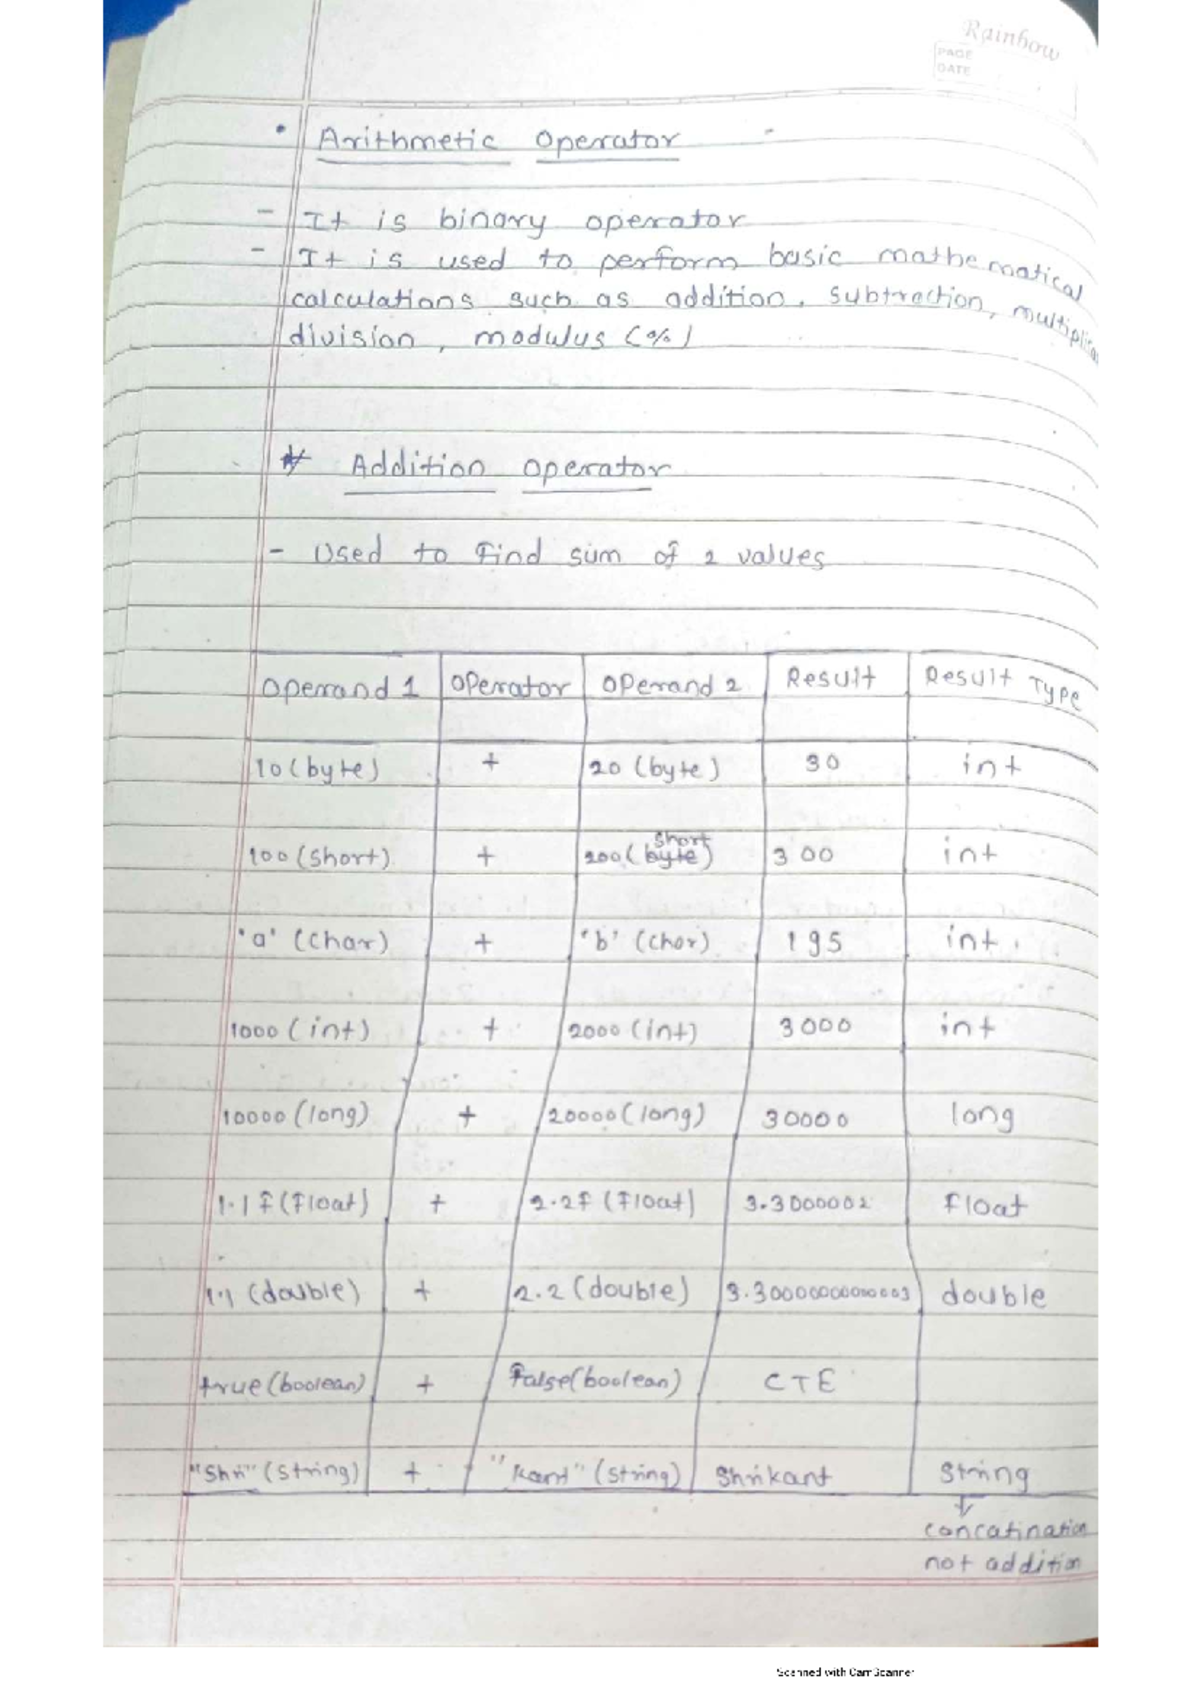 Rainbow
PAGE
DATE
• Arithmetic Operator
- It is binary operator
- It is used to perform basic mathematical
calculations such as addition, subtraction,
division, modulus (%)
* Addition Operator
- Used to find sum of 2 values
Operand 1 Operator Operand 2 Result Result Type
10 (byte) + 20 (byte) 30 int
100 (short) + 200 (byte) short 300 int
'a' (char) + 'b' (char) 195 int
1000 (int) + 2000 (int) 3000 int
10000 (long) + 20000 (long) 30000 long
1.1f (float) + 2.2f (float) 3.3000002 float
1.1 (double) + 2.2 (double) 3.3000000000003 double
true (boolean) + false (boolean) CTE
"Shri" (String) + "kant" (String) Shrikant String
↓
concatination
not addition
Scanned with CamScanner